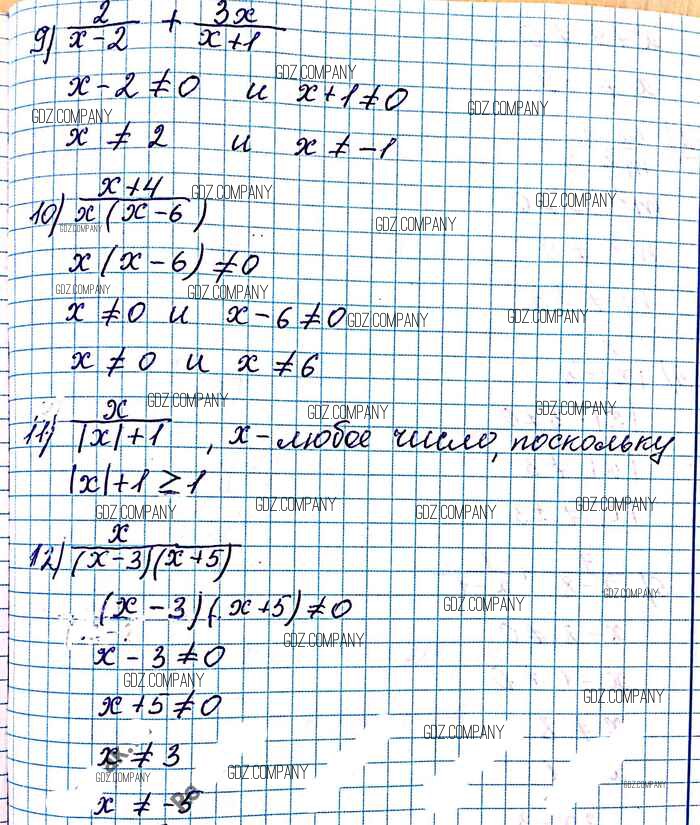 9) 2/(x-2) + 3x/(x+1)
x-2≠0 и x+1≠0
x≠2 и x≠-1
10) (x+4)/(x(x-6))
x(x-6)≠0
x≠0 и x-6≠0
x≠0 и x≠6
11) x/(|x|+1), x-любое число, поскольку
|x|+1≥1
12) x/((x-3)(x+5))
(x-3)(x+5)≠0
x-3≠0
x+5≠0
x≠3
x≠-5
GDZ.COMPANY